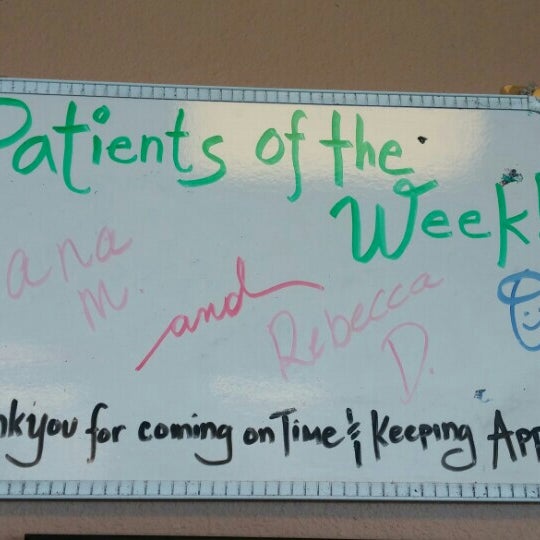 Patients of the
Week!
ana
M.
and
Rebecca
D.
nkyou for coming on Time & Keeping App